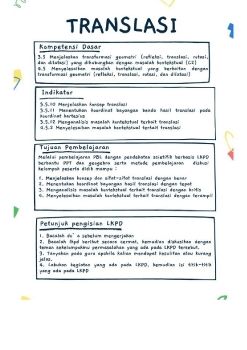 TRANSLASI
Kompetensi Dasar
3.5 Menjelaskan transformasi geometri (refleksi, translasi, rotasi,
dan dilatasi) yang dihubungkan dengan masalah kontekstual (C2)
4.5 Menyelesaikan masalah kontekstual yang berkaitan dengan
transformasi geometri (refleksi, translasi, rotasi, dan dilatasi)
Indikator
3.5.10 Menjelaskan konsep translasi
3.5.11 Menentukan koordinat bayangan benda hasil translasi pada
koordinat kartesius
3.5.12 Menganalisis masalah kontekstual terkait translasi
Menyelesaikan masalah kontekstual terkait translasi
Tujuan Pembelajaran
Melalui pembelajaran PBL dengan pendekatan saintifik berbasis LKPD
berbantu PPT dan geogebra serta metode pembelajaran diskusi
kelompok peserta didik mampu :
1. Menjelaskan konsep dan sifat-sifat translasi dengan benar
2. Menentukan koordinat bayangan hasil translasi dengan tepat
3. Menganalisis masalah kontekstual terkait translasi dengan kritis
4. Menyelesaikan masalah kontekstual terkait translasi dengan terampil
Petunjuk pengisian LKPD
1. Bacalah do'a sebelum mengerjakan
2. Bacalah lkpd berikut secara cermat, kemudian diskusikan dengan
teman sekelompokmu permasalahan yang ada pada LKPD tersebut.
3. Tanyakan pada guru apabila kalian mendapat kesulitan atau kurang
jelas.
4. Lakukan kegiatan yang ada pada LKPD, kemudian isi titik-titik
yang ada pada LKPD